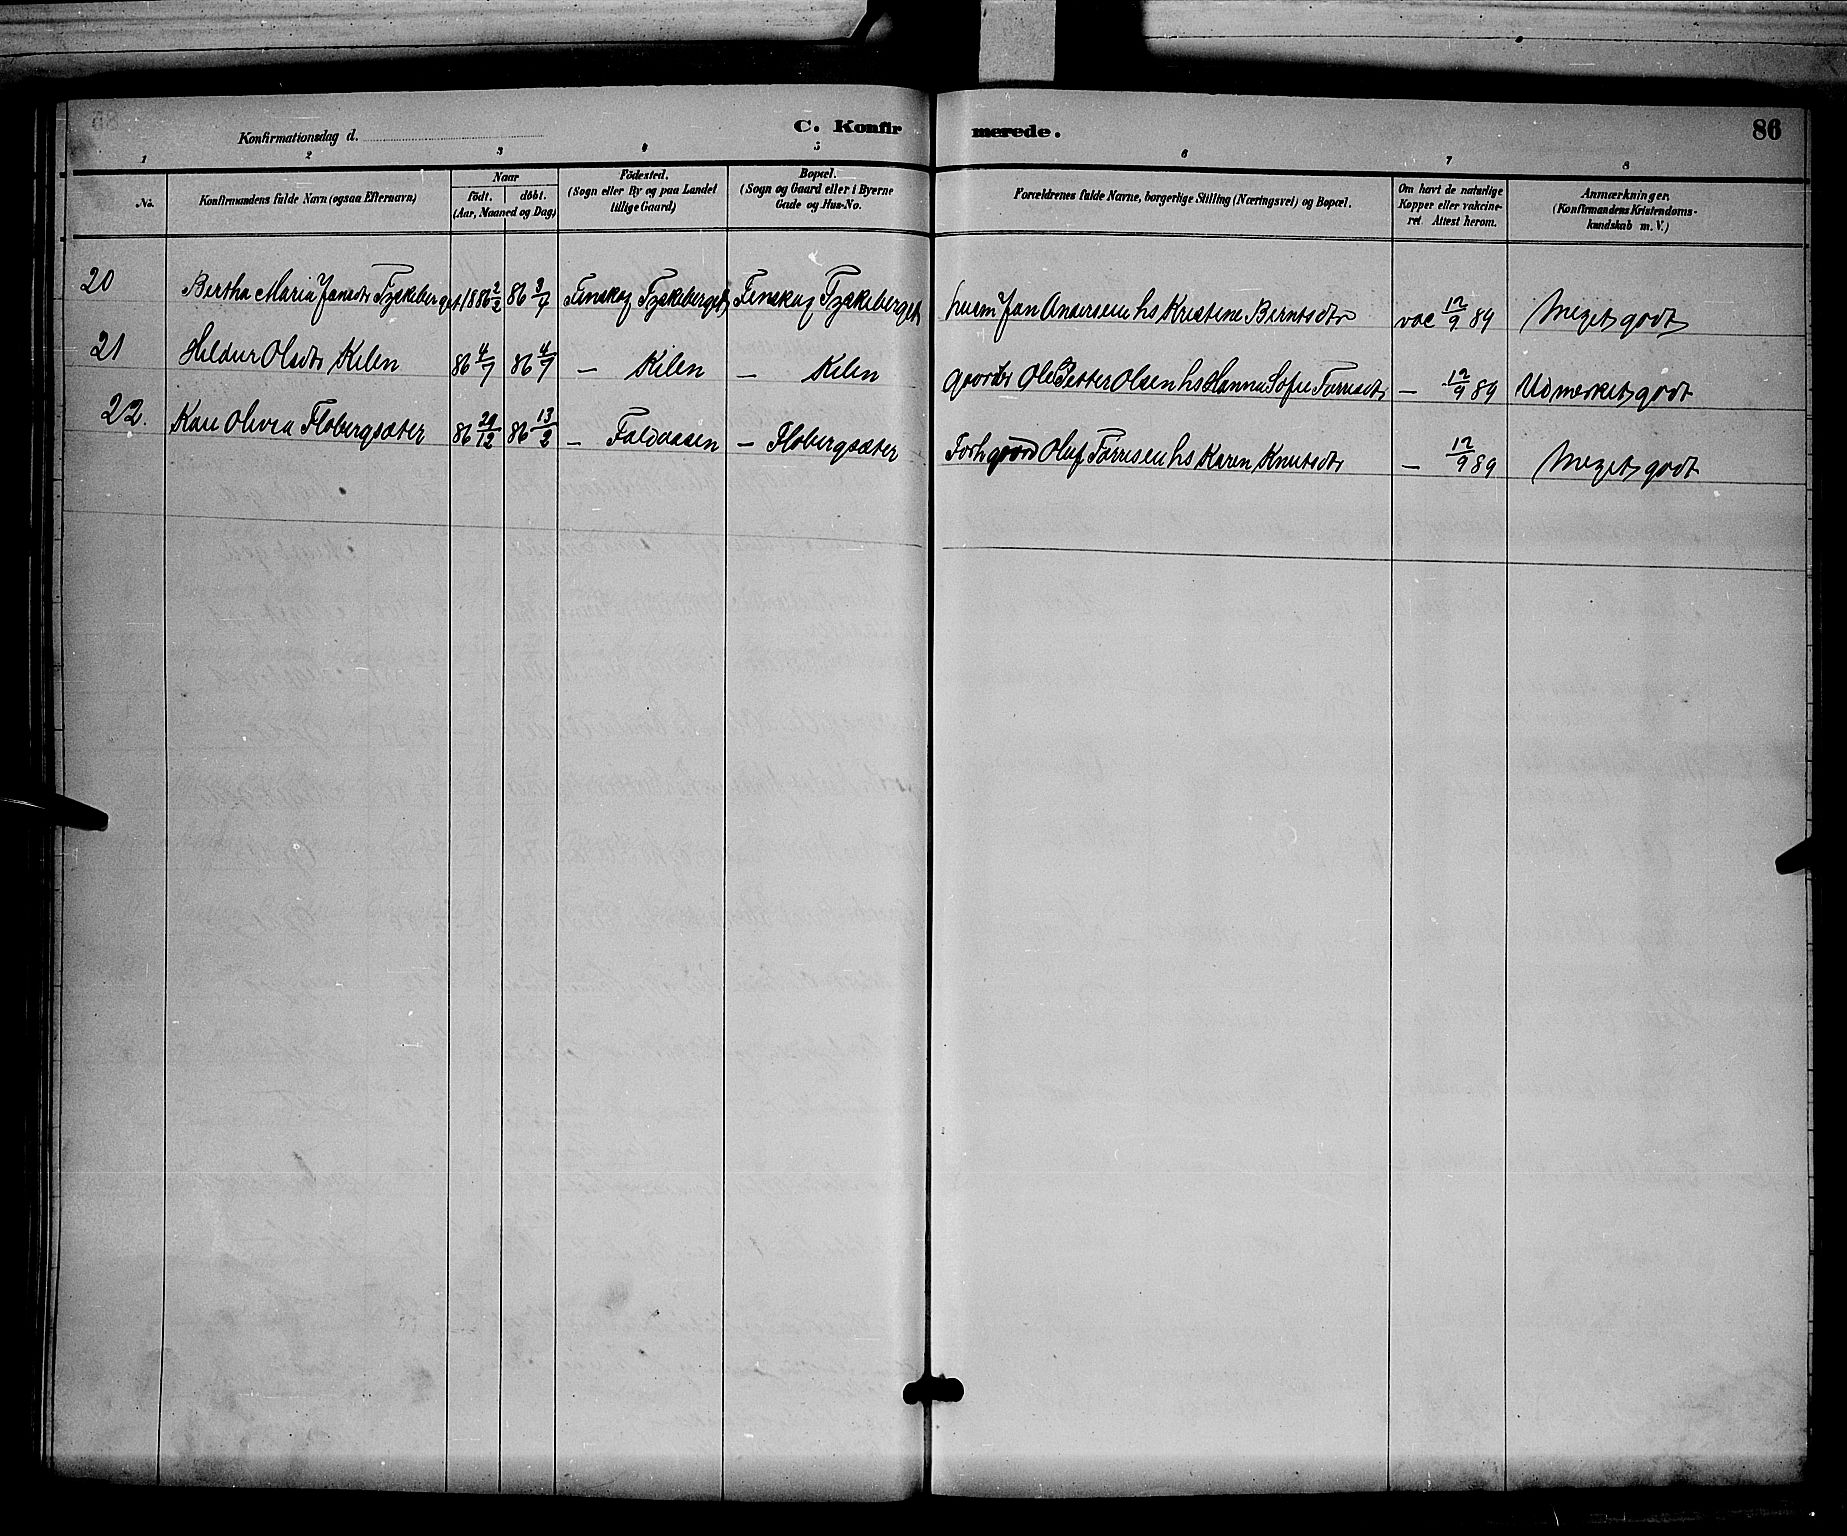 Konfirmationsdag d.
C. Konfirmerede.
86
1 2 3 4 5 6 7 8
No.
Konfirmandens fulde Navn (ogsaa Efternavn)
Naar
födt. döbt.
(Aar, Maaned og Dag)
Födested.
(Sogn eller By og paa Landet
tillige Gaard)
Bopæl.
(Sogn og Gaard eller i Byerne
Gade og Hus-No.
Forældrenes fulde Navne, borgerlige Stilling (Næringsvei) og Bopæl.
Om havt de naturlige
Kopper eller vakcine-
ret Attest herom.
Anmærkninger.
(Konfirmandens Kristendoms-
kundskab m. V.)
20 Bertha Maria Jansdtr Tyskeberget 1886 2/2 86 3/4 Finskog Tyskeberget Finskog Tyskeberget husm Jan Andersen hs Kristine Berntsdtr vac 12/9 89 Meget godt
21 Hildur Olsdtr Kilen 86 4/7 86 4/9 — Kilen — Kilen Gaardbr Ole Petter Olsen hs Hanna Sofie Tarresdtr — 12/9 89 Udmerket godt
22. Kari Olivia Flobergsæter 86 13/2 — Faldaasen — Flobergsæter Forh gaard Oluf Tarresen hs Karen Knutsdtr — 12/9 89 Meget godt